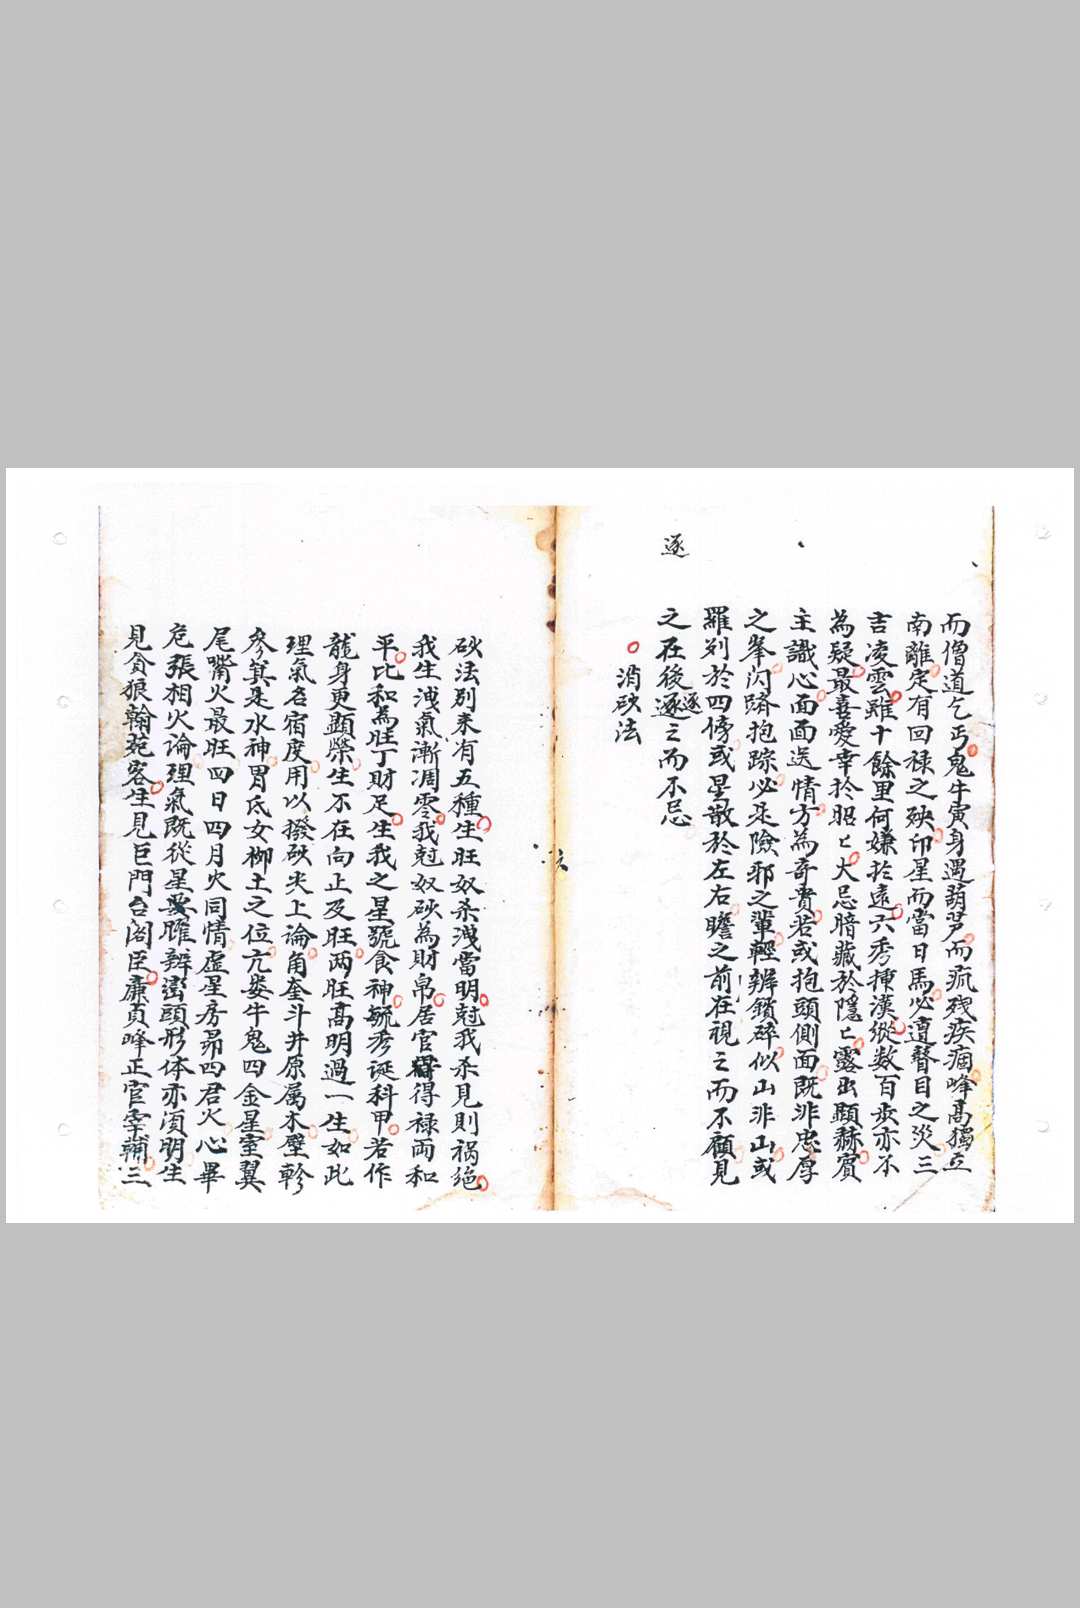 而僧道乞丐鬼牛寅身遇葫芦而瘋殘疾痼峰高獨立
南離定有回禄之殃印星而當日馬必遭瞽目之災三
吉凌雲雖十餘里何嫌於遠六秀揀漢縱数百奕亦不
為疑最喜愛幸於昭匕大忌暗藏於隱匕露出顯赫賓
主識心面面送情方為奇貴若或抱頭側面既非忠厚
之峯閃躋抱踪必是險邪之輩輕辨鎖碎似山非山或
羅列於四傍或星散於左右瞻之前在視之而不顧見
之在後逐之而不忌
逐
逐
消砂法
砂法别来有五種生旺奴杀洩當明尅我杀見則祸絶
我生洩氣漸凋零我尅奴砂為財帛居官得禄両和
平比和為旺丁財足生我之星號食神毓秀诞科甲若作
龍身更顯榮生不在向止及旺两旺高明過一生如此
理氣名宿度用以撥砂尖上論角奎斗井原属木壁軫
參箕是水神胃氐女柳土之位亢娄牛鬼四金星室翼
尾觜火最旺四日四月火同情虚星房昴四君火心畢
危張相火論理氣既從星曜辨巒頭形体亦須明生
見貪狼翰苑客生見巨門台阁臣廉貞峰正官宰輔三